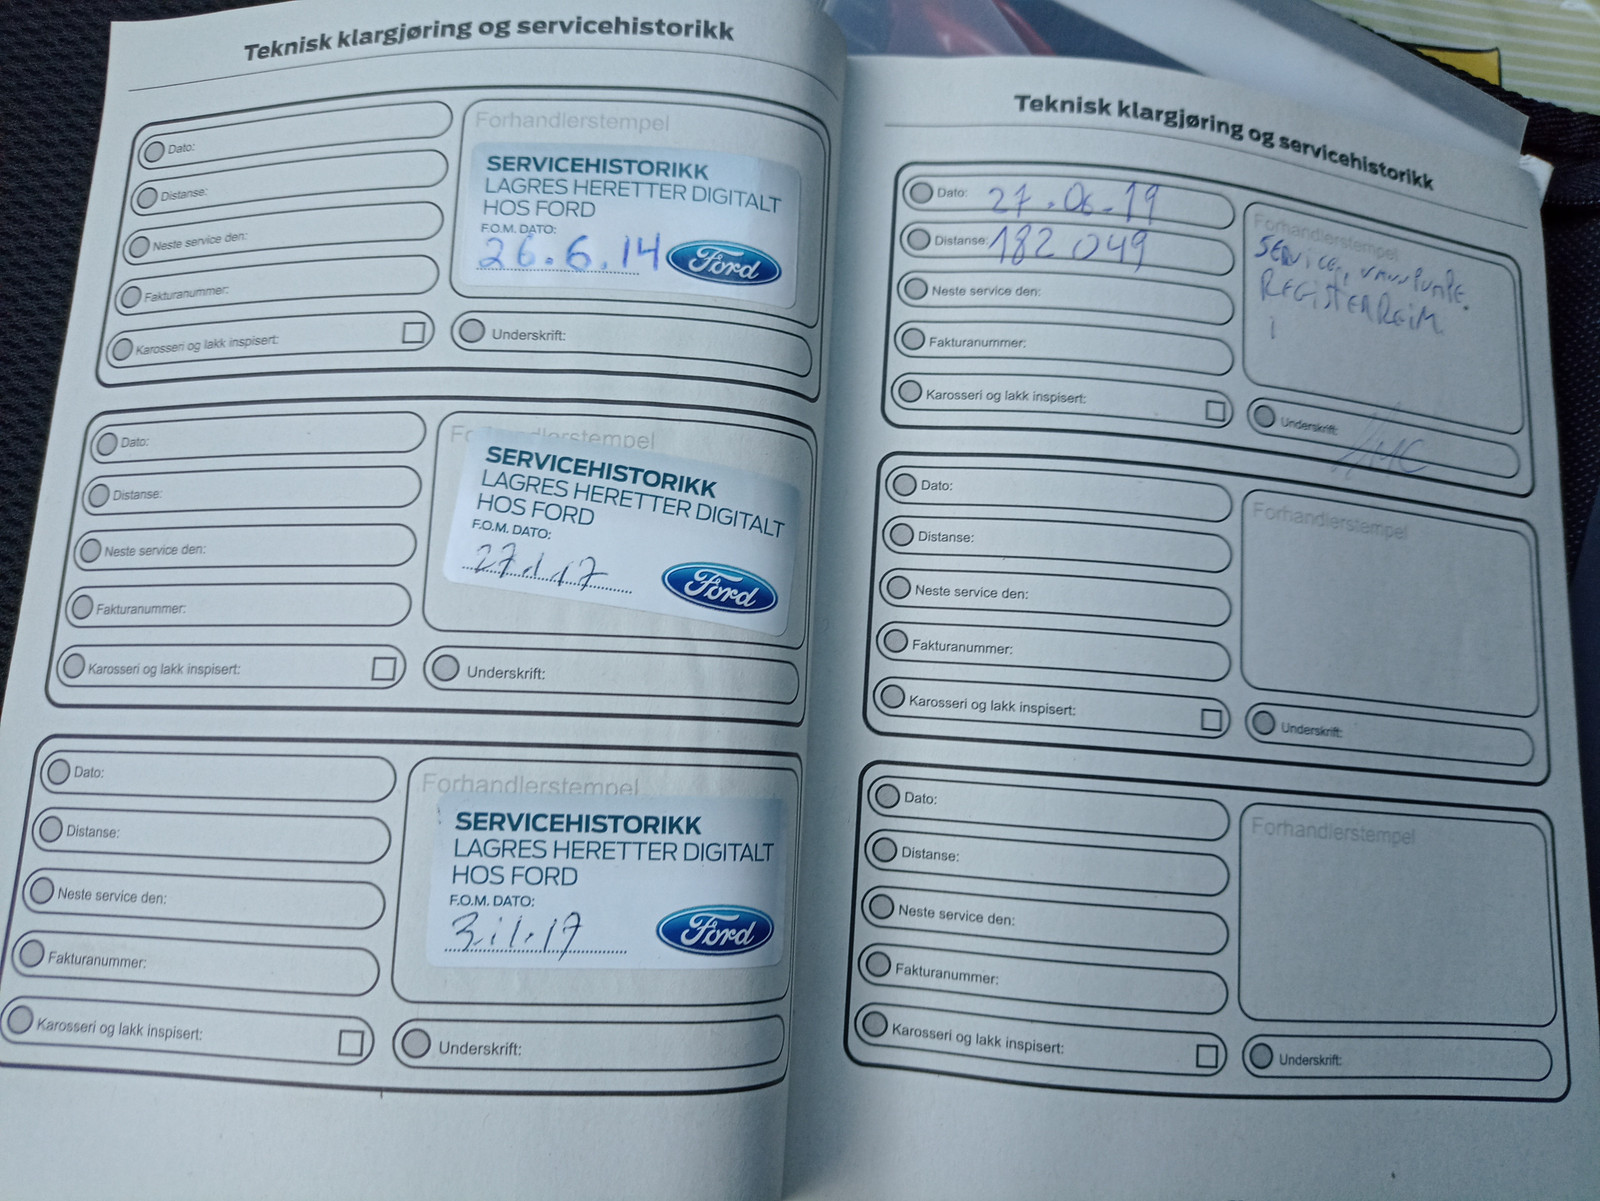 Teknisk klargjøring og servicehistorikk
Dato:
Distanse:
Neste service den:
Fakturanummer:
Karosseri og lakk inspisert:
Forhandlerstempel
SERVICEHISTORIKK
LAGRES HERETTER DIGITALT
HOS FORD
F.O.M. DATO:
26.6.14
Ford
Underskrift:
Dato:
Distanse:
Neste service den:
Fakturanummer:
Karosseri og lakk inspisert:
Forhandlerstempel
SERVICEHISTORIKK
LAGRES HERETTER DIGITALT
HOS FORD
F.O.M. DATO:
27.1.17
Ford
Underskrift:
Dato:
Distanse:
Neste service den:
Fakturanummer:
Karosseri og lakk inspisert:
Forhandlerstempel
SERVICEHISTORIKK
LAGRES HERETTER DIGITALT
HOS FORD
F.O.M. DATO:
Ford
Underskrift:
Teknisk klargjøring og servicehistorikk
Dato: 27.06-19
Distanse: 182 049
Neste service den:
Fakturanummer:
Karosseri og lakk inspisert:
Forhandlerstempel
SERVICE,
REGISTERREIM
Underskrift:
Dato:
Distanse:
Neste service den:
Fakturanummer:
Karosseri og lakk inspisert:
Forhandlerstempel
Underskrift:
Dato:
Distanse:
Neste service den:
Fakturanummer:
Karosseri og lakk inspisert:
Forhandlerstempel
Underskrift: